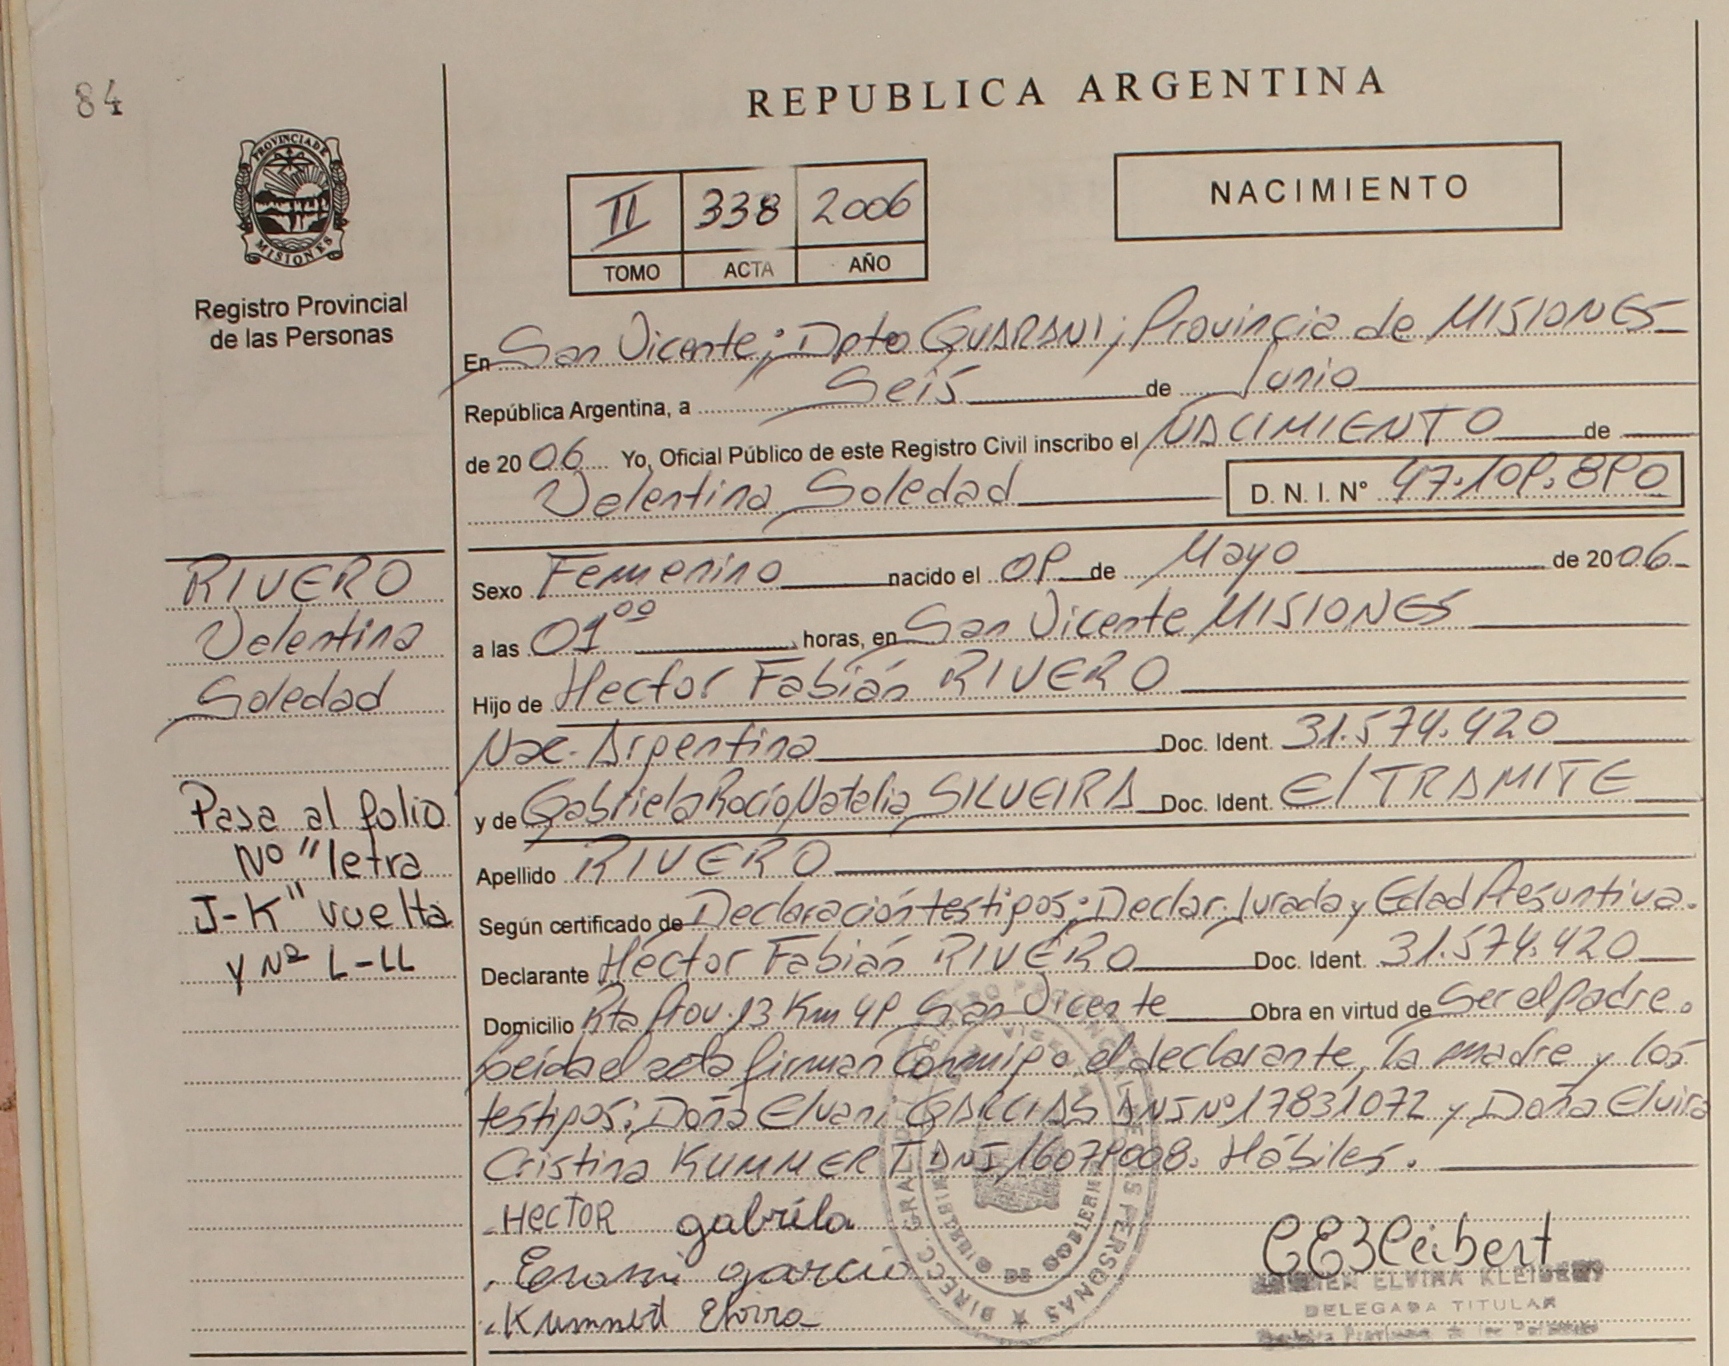 84
REPUBLICA ARGENTINA
PROVINCIA DE MISIONES
Registro Provincial
de las Personas
II 338 2006
TOMO ACTA AÑO
NACIMIENTO
En San Vicente; Dpto GUARANI; Provincia de MISIONES
República Argentina, a Seis de Junio
de 2006 Yo, Oficial Público de este Registro Civil inscribo el NACIMIENTO de
Valentina Soledad D. N. I. Nº 47.109.890
RIVERO
Valentina
Soledad
Pasa al folio
Nº "letra
J-K" vuelta
y Nº L-LL
Sexo Femenino nacido el 09 de Mayo de 2006
a las 01⁰⁰ horas, en San Vicente MISIONES
Hijo de Hector Fabián RIVERO
Nac. Argentina Doc. Ident. 31.574.420
y de Gabriela Rocío Natalia SILVEIRA Doc. Ident. E/TRAMITE
Apellido RIVERO
Según certificado de Declaración testigos; Declar. Jurada y Edad Presuntiva.
Declarante Héctor Fabián RIVERO Doc. Ident. 31.574.420
Domicilio Rta Prov. 13 Km 49 San Vicente Obra en virtud de Ser el padre.
Leída el acta firman conmigo el declarante, la madre y los
testigos; Doña Elvani GARCIAS DNI Nº 17831072 y Doña Elvira
Cristina KUMMERT DNI 16079008. Hábiles.
HecToR gabrila
garcia
Kummert Elvira
CEKleibert
ELVIRA KLEIBERT
DELEGADA TITULAR
DIRECC. GRAL. DEL REGISTRO PROVINCIAL DE LAS PERSONAS
DE GOBIERNO